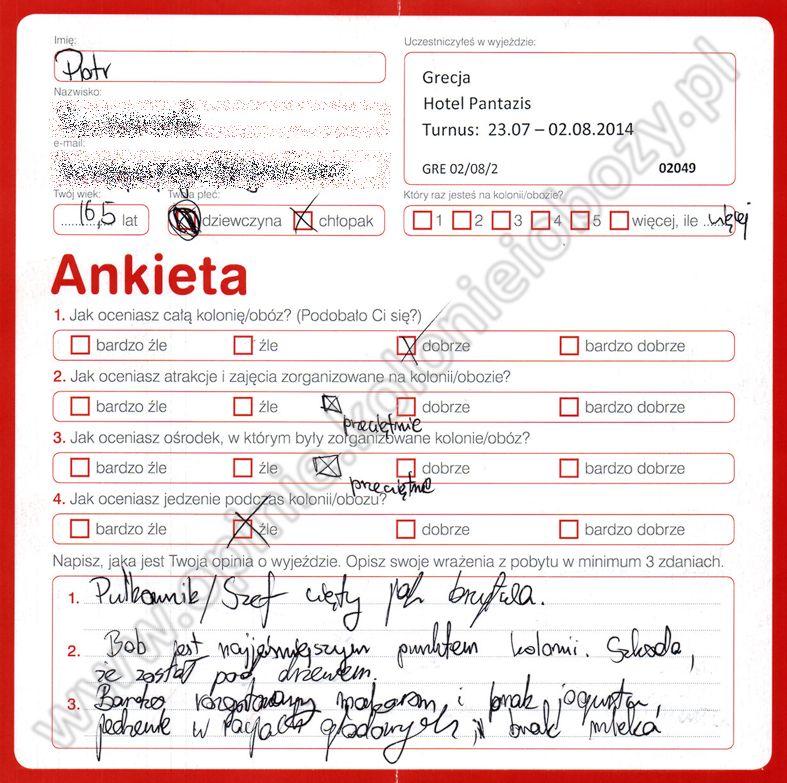 Imię:
Piotr
Nazwisko:
e-mail:
Twój wiek:
16,5 lat
Twoja płeć:
dziewczyna chłopak
Uczestniczyłeś w wyjeździe:
Grecja
Hotel Pantazis
Turnus: 23.07 – 02.08.2014
GRE 02/08/2 02049
Który raz jesteś na kolonii/obozie?
1 2 3 4 5 więcej, ile więcej
Ankieta
1. Jak oceniasz całą kolonię/obóz? (Podobało Ci się?)
bardzo źle źle dobrze bardzo dobrze
2. Jak oceniasz atrakcje i zajęcia zorganizowane na kolonii/obozie?
bardzo źle źle dobrze bardzo dobrze
przeciętnie
3. Jak oceniasz ośrodek, w którym były zorganizowane kolonie/obóz?
bardzo źle źle dobrze bardzo dobrze
przeciętne
4. Jak oceniasz jedzenie podczas kolonii/obozu?
bardzo źle źle dobrze bardzo dobrze
Napisz, jaka jest Twoja opinia o wyjeździe. Opisz swoje wrażenia z pobytu w minimum 3 zdaniach.
1. Pułkownik/Szef cięty jak brzytwa.
2. Bob jest najjaśniejszym punktem kolonii. Szkoda,
że został pod drzewem.
3. Bardzo rozgotowany makaron i brak jogurtu,
jedzenie w racjach głodowych, brak mleka
www.opinie.kolonieiobozy.pl